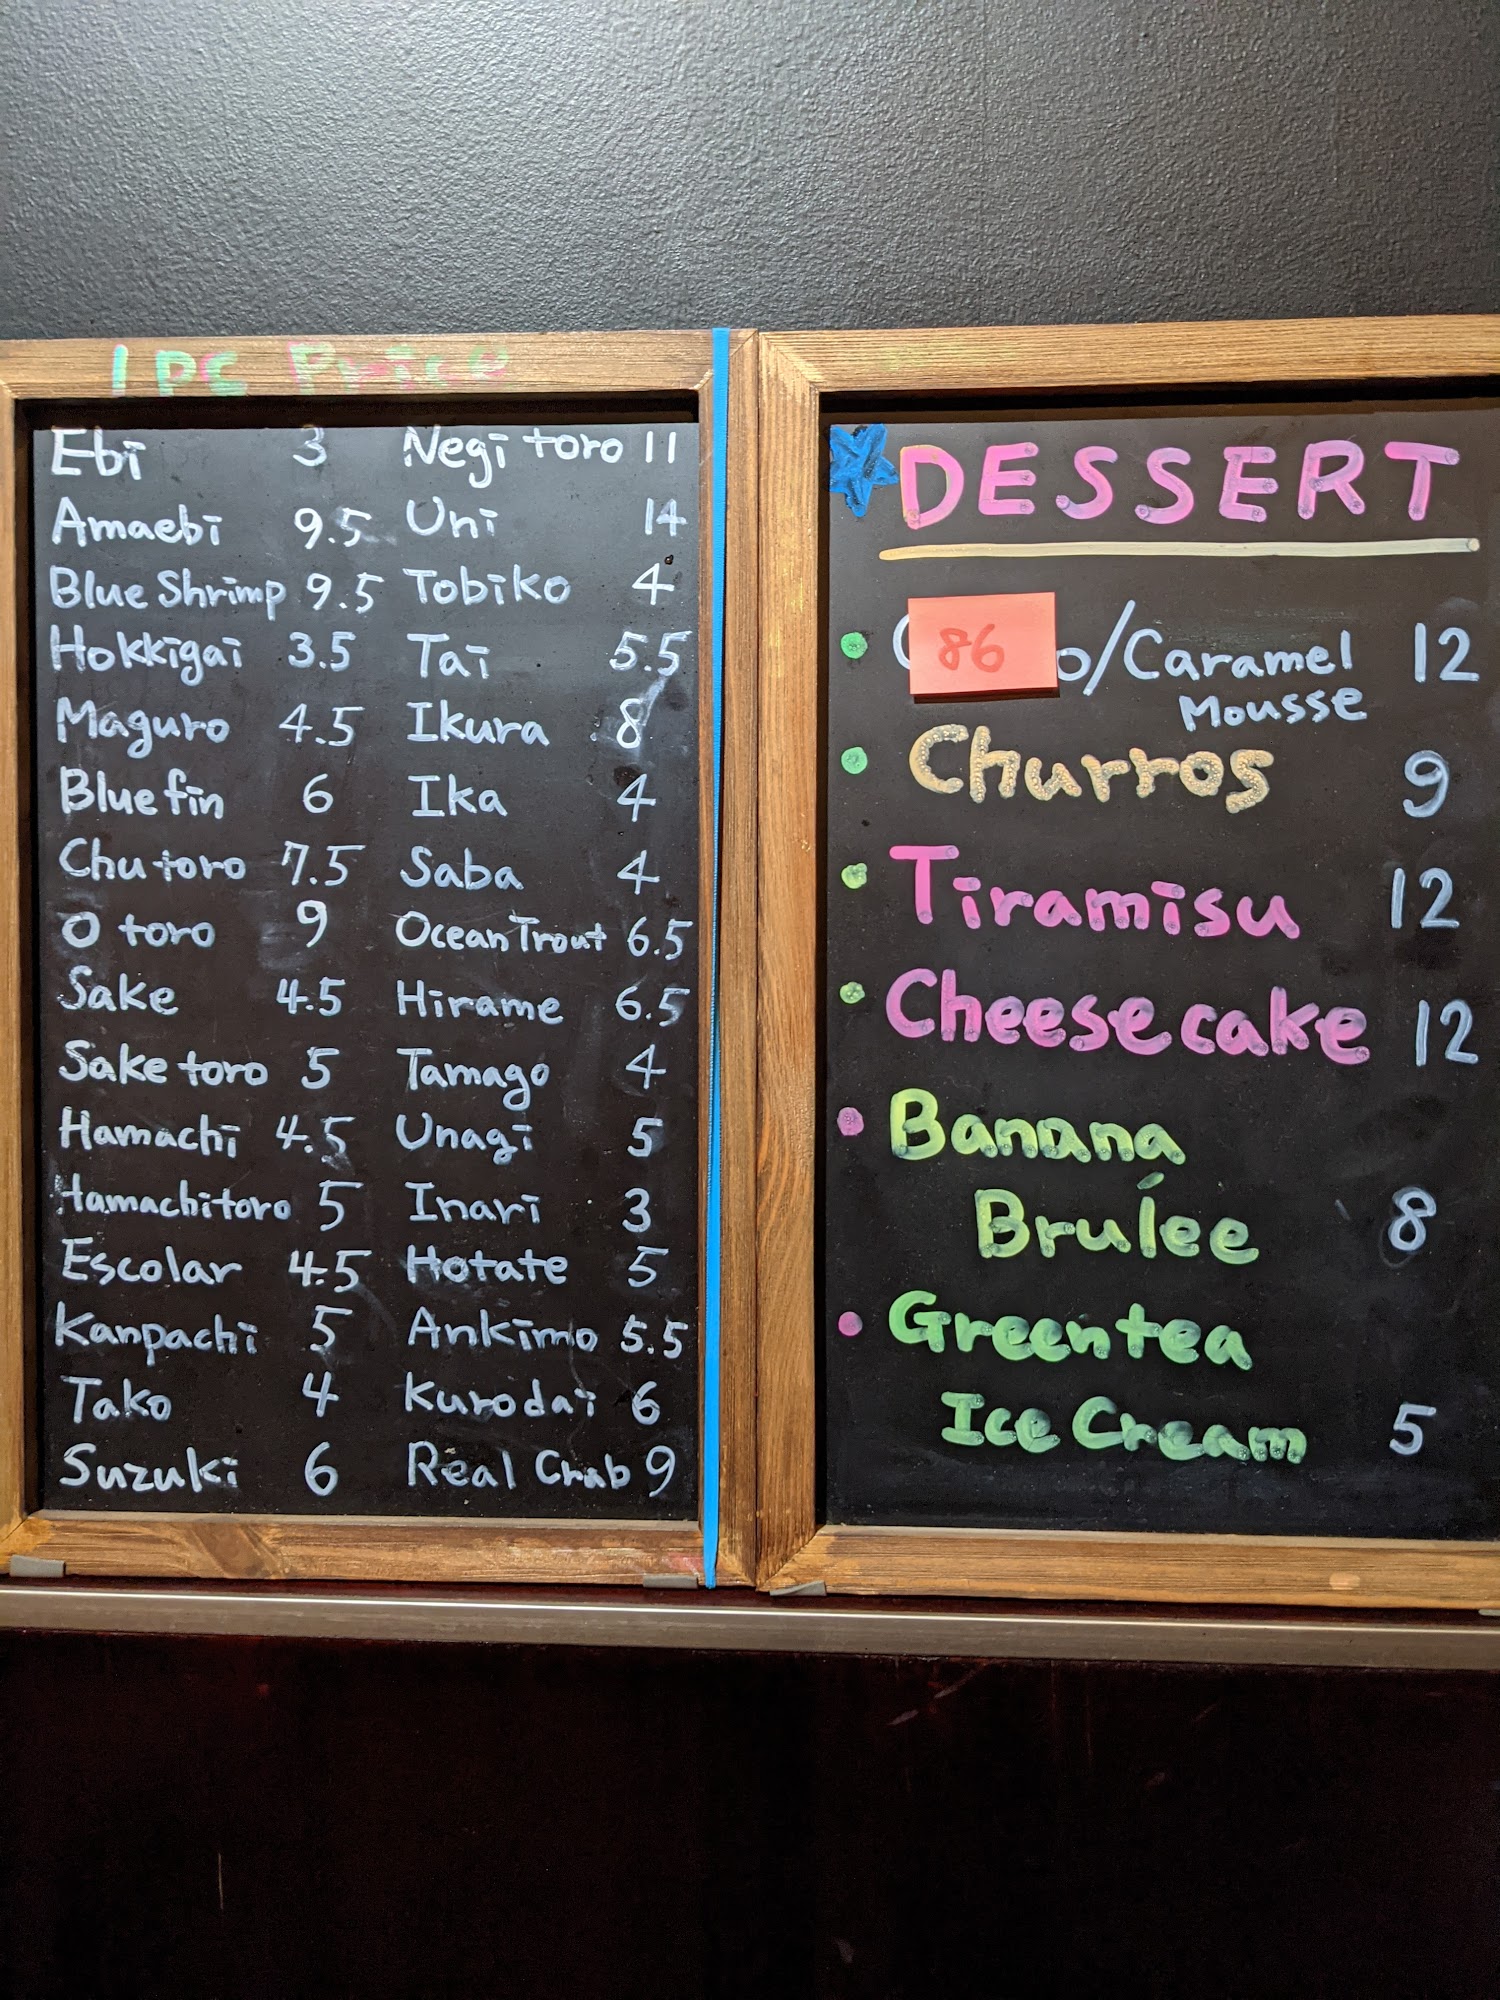 1 PC Price
Ebi 3
Amaebi 9.5
Blue Shrimp 9.5
Hokkigai 3.5
Maguro 4.5
Blue fin 6
Chu toro 7.5
O toro 9
Sake 4.5
Sake toro 5
Hamachi 4.5
Hamachi toro 5
Escolar 4.5
Kanpachi 5
Tako 4
Suzuki 6
Negi toro 11
Uni 14
Tobiko 4
Tai 5.5
Ikura 8
Ika 4
Saba 4
Ocean Trout 6.5
Hirame 6.5
Tamago 4
Unagi 5
Inari 3
Hotate 5
Ankimo 5.5
Kurodai 6
Real Crab 9
DESSERT
86 o/Caramel 12
Mousse
Churros 9
Tiramisu 12
Cheese cake 12
Banana
Bruleé 8
Greentea
Ice Cream 5